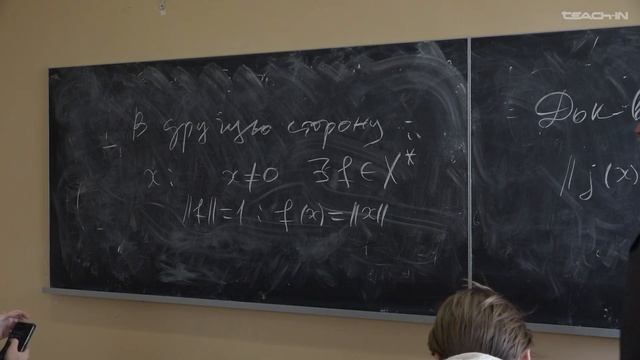 TEACH-IN
В другую сторону :
x : x≠0 ∃ f ∈ X*
||f||=1 : f(x)=||x||
Док-в
||j(x)